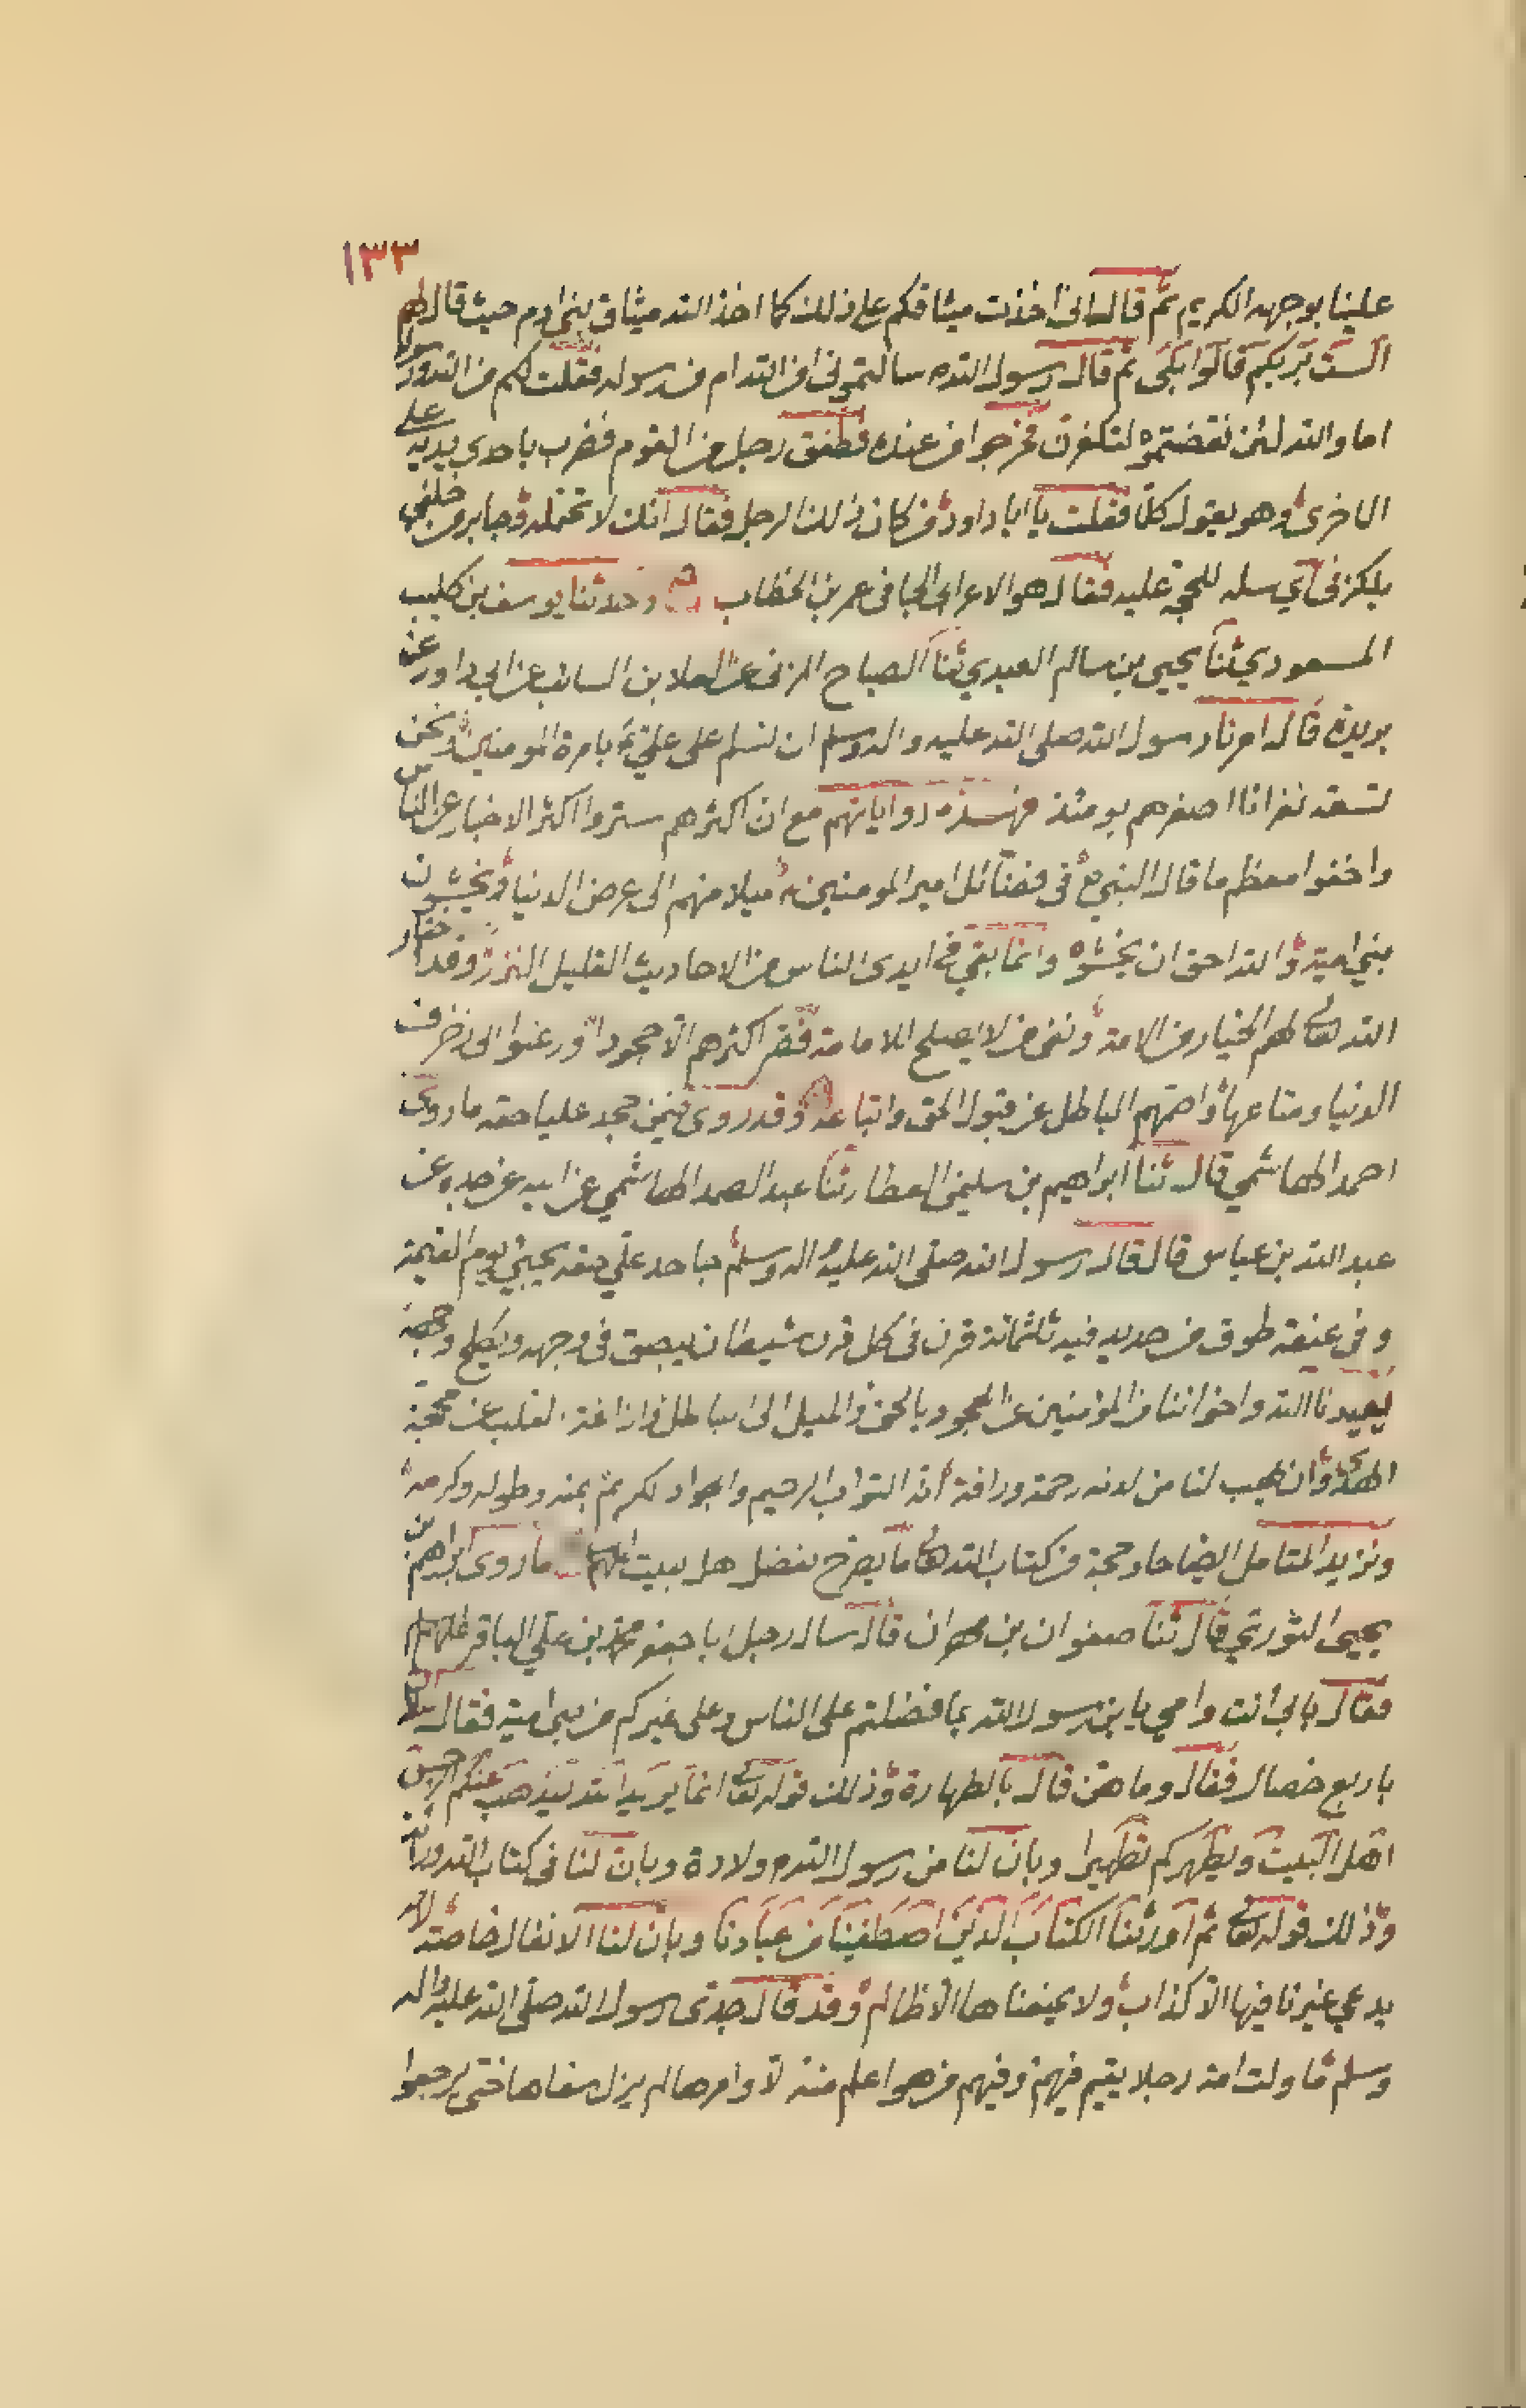 ١٣٣
علينا بوجهه الكريم ثم قال انى اخذت ميثاقكم على ذلك كما اخذ الله ميثاق بنى ادم حيث قال لهم
الست بربكم قالوا بلى ثم قال رسول الله ص سالتمونى امن الله ام من رسوله فقلت لكم من الله ورسوله
اما والله لئن نقضتموه لتكفرن فخرجوا من عنده فطفق رجل من القوم فضرب باحدى يديه على
الاخرى وهو يقول كلا فقلت يا ابا داود من كان ذلك الرجل فقال انك لا تحتمله وجابر من خلفى
يلكزنى اي سله للحجة عليه فقال هو الاعرابى الجافى عمر بن الخطاب وحدثنا يوسف بن كليب
المسعودي ثنا يحيى بن سالم العبدي ثنا الصباح المزنى عن العلا بن السائب عن ابى داود عن
بريدة قال امرنا رسول الله صلى الله عليه واله وسلم ان نسلم على علي ع بامرة المومنين ونحن
تسعه نفر انا اصغرهم يومئذ فهذه رواياتهم مع ان اكثرهم ستروا اكثر الاخبار عن الناس
واخفوا معظم ما قال النبي ص فى فضائل امير المومنين ع ميلا منهم الى عرض الدنيا ويخشون
بني امية والله احق ان يخشوه وانما بقي في ايدى الناس من الاحاديث القليل النزر وقد اختار
الله تعالى لهم الخيار من الامة ونفى من لا يصلح للامامة فقر اكثرهم الا جحودا ورغبوا الى زخرف
الدنيا ومتاعها واصمهم الباطل عن قبول الحق واتباعه وقد روى فيمن جحد عليا حقه ما روى
احمد الهاشمي قال ثنا ابراهيم بن سليمن العطار ثنا عبد الصمد الهاشمي عن ابيه عن جده عن
عبد الله بن عباس قال قال رسول الله صلى الله عليه واله وسلم جاحد علي حقه يجيئ يوم القيمة
و فى عنقه طوق من حديد فيه ثلثمائة قرن فى كل قرن شيطان يبصق فى وجهه ويكلح وجهه
يعيذنا الله واخواننا من المؤمنين عن الجحود بالحق والميل الى الباطل وازاغة القلب عن محجة
الهدى وان يهب لنا من لدنه رحمة ورافة انه التواب الرحيم والجواد الكريم بمنه وطوله وكرمه
ونزيد المتامل ايضاحا وحجة من كتاب الله تعالى ما يصرح بفضل اهل البيت عليهم السلام ما روى ابراهيم بن
يحيى الثوري قال ثنا صفوان بن مهران قال سال رجل ابا جعفر محمد بن علي الباقر عليهم السلام
فقال بابى انت وامي يا بن رسول الله بما فضلتم على الناس وعلى غيركم من بنى امية فقال
باربع خصال فقال وما هن قال بالطهارة وذلك قوله تعالى انما يريد الله ليذهب عنكم الرجس
اهل البيت ويطهركم تطهيرا وبان لنا من رسول الله ص ولادة وبان لنا فى كتاب الله وراثة
وذلك قوله تعالى ثم اورثنا الكتاب الذين اصطفينا من عبادنا وبان لنا الانفال خاصة لا
يدعي غيرنا فيها الا كذاب ولا يمنعناها الا ظالم وقد قال جدى رسول الله صلى الله عليه واله
وسلم ما ولت امة رجلا يقيم فيهم وفيهم من هو اعلم منه الا وامرها لم يزل سفاها حتى يرجعوا